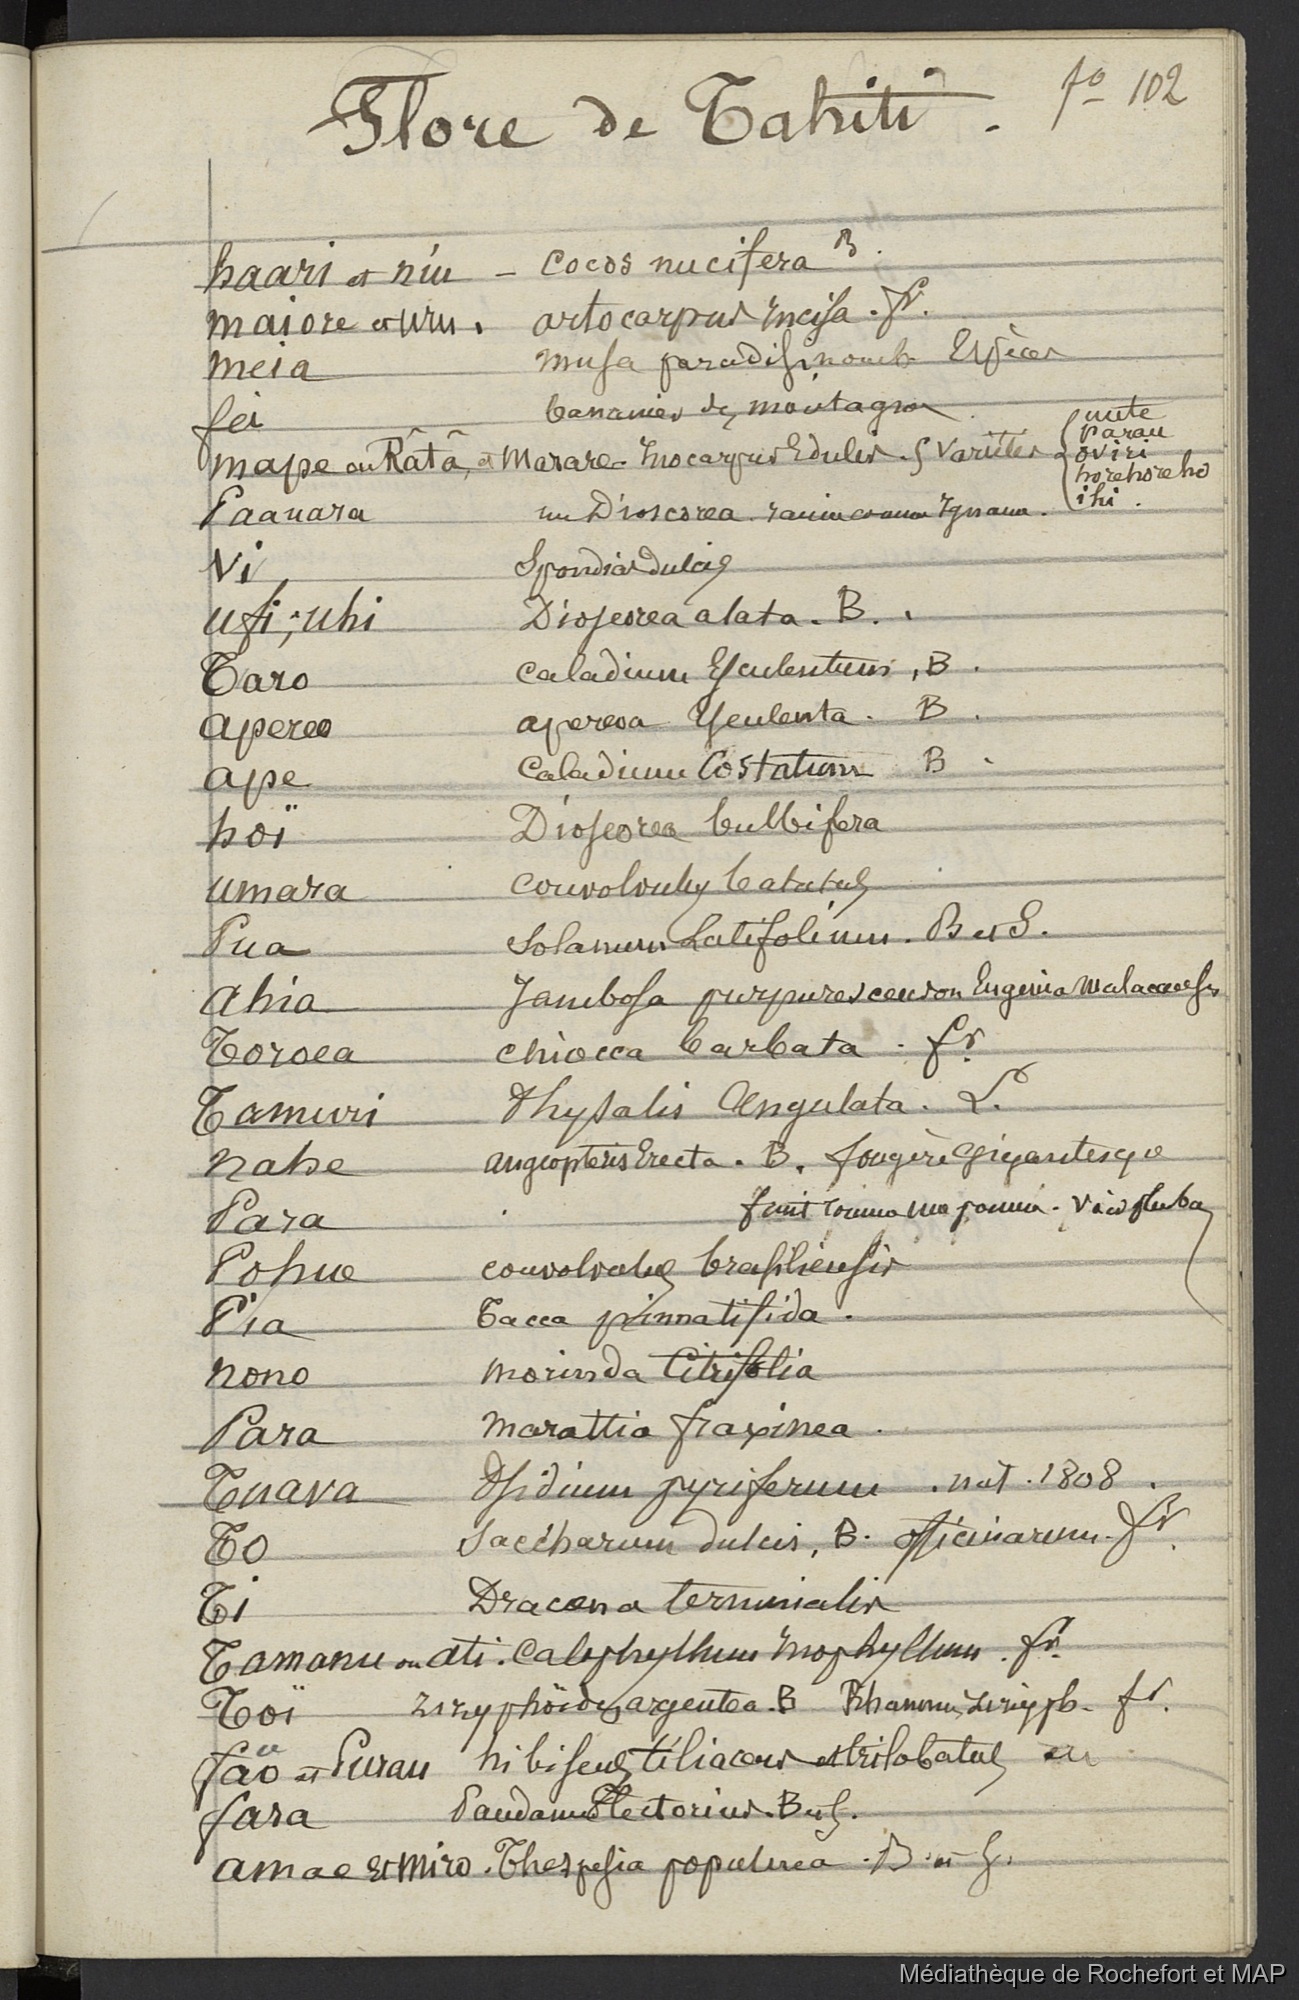 fo 102
Flore de Tahiti.
haari et niu - cocos nucifera B.
maiore et uru. artocarpus Incisa. fr.
meia musa paradis. nomb. Espèces
fëi bananier de montagne
mape ou Râtâ, et Marare. Inocarpus Edulis. 5 variétés { mite
parau
oviri
horehoreho
ihi.
Paauara un Dioscorea. racine comme Igname.
Vi Spondias dulcis
ufi; uhi Dioscorea alata. B.
Taro caladium Esculentum, B.
apereo aperoa Esculenta. B.
ape Caladium Costatum B.
hoï Dioscorea bulbifera
umara convolvulus batatas
Pua Solanum Latifolium. B et S.
ahia Jambosa purpurescens ou Eugenia Malaccensis
Toroea chiocca barbata. fr.
Tamuri Physalis Angulata. L.
nahe angiopteris Erecta. B. fougère gigantesque
Para fruit comme une pomme.
Pohue convolvulus brasiliensis
Pia Tacca pinnatifida.
nono morinda Citrifolia
Para marattia fraxinea.
Tuava Psidium pyriferum. nat. 1808.
To Saccharum dulcis, B. officinarum. fr.
Ti Dracoena terminalis
Tamanu ou ati. Calophyllum Inophyllum. fr.
Toï zizyphoïdes argentea. B Rhamnus zizyph. fr.
faö et Purau hibiscus tiliaceus et trilobatus
fara Pandanus Tectorius. B et S.
amae et miro. Thespesia populnea. B. et S.
Médiathèque de Rochefort et MAP